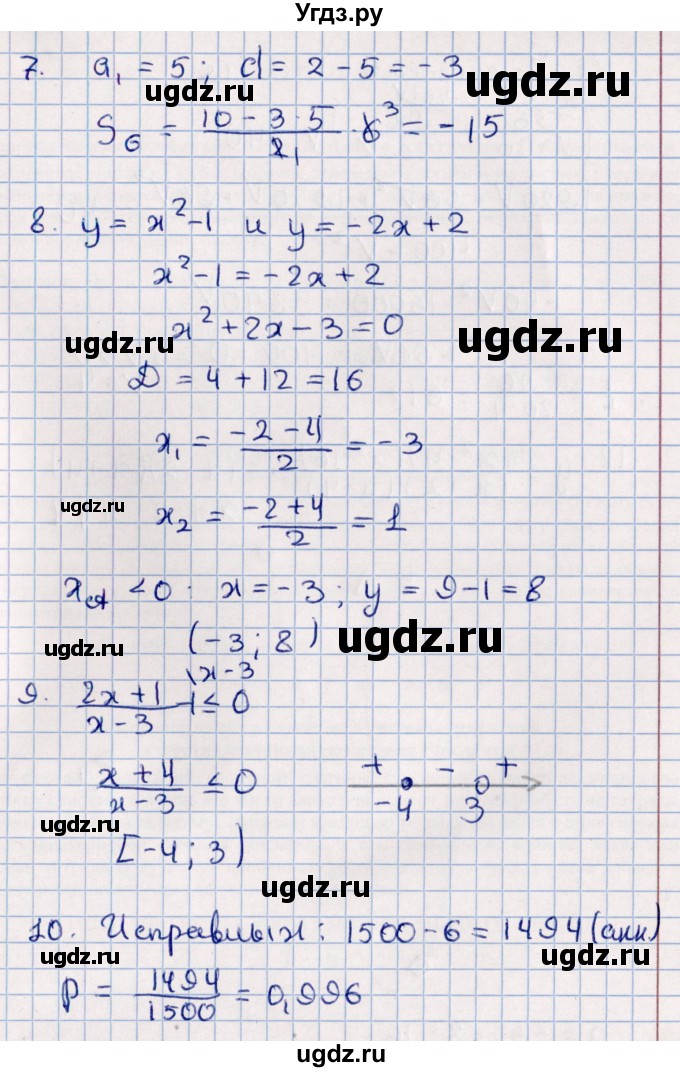 Угдз.ру
7. a₁ = 5; d = 2 - 5 = -3
ugdz.ru ugdz.ru
S₆ = (10 - 3·5)/2̸₁ · 6̸³ = -15
8. y = x² - 1 и y = -2x + 2
x² - 1 = -2x + 2
x² + 2x - 3 = 0
ugdz.ru ugdz.ru
D = 4 + 12 = 16
x₁ = (-2 - 4)/2 = -3
ugdz.ru
x₂ = (-2 + 4)/2 = 1
x_A < 0: x = -3; y = 9 - 1 = 8
(-3; 8)
ugdz.ru ugdz.ru
\x-3
9. (2x + 1)/(x - 3) - 1 ≤ 0
(x + 4)/(x - 3) ≤ 0
+ - +
-4 3
ugdz.ru
[-4; 3)
ugdz.ru
10. Исправных: 1500 - 6 = 1494 (акк)
ugdz.ru ugdz.ru
P = 1494/1500 = 0,996
ugdz.ru